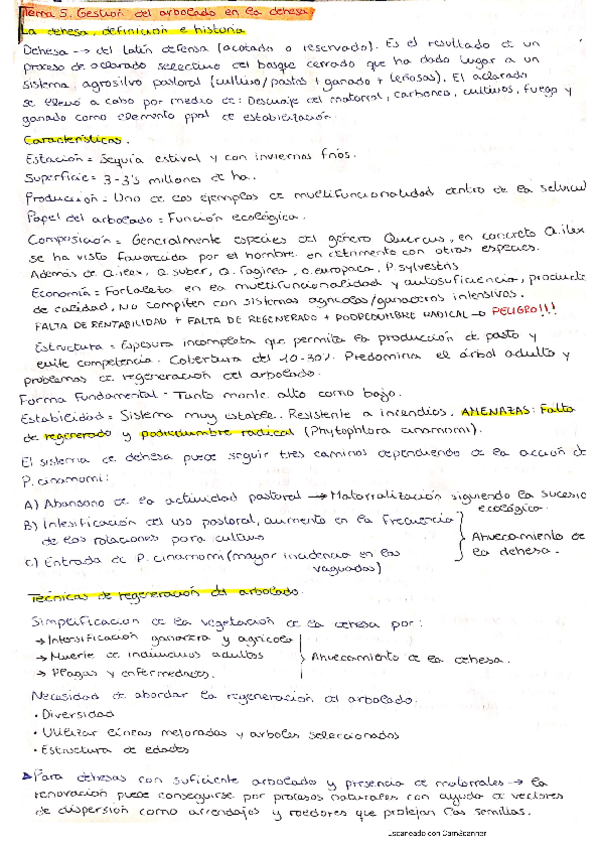 Tema 5. Gestión del arbolado en la dehesa
La dehesa, definición e historia
Dehesa --> del latín defensa (acotado o reservado). Es el resultado de un
proceso de aclarado selectivo del bosque cerrado que ha dado lugar a un
sistema agrosilvo pastoral (cultivo/pastos + ganado + leñosas). El aclarado
se llevó a cabo por medio de: Descuaje del matorral, carboneo, cultivos, fuego y
ganado como elemento ppal de estabilización.
Características.
Estación = Sequía estival y con inviernos fríos.
Superficie = 3-3's millones de ha.
Producción = Uno de los ejemplos de multifuncionalidad dentro de la selvicul
Papel del arbolado = Función ecológica.
Composición = Generalmente especies del género Quercus, en concreto Q.ilex
se ha visto favorecida por el hombre en detrimento con otras especies.
Además de Q.ilex, Q.suber, Q.faginea, O.europaea, P.sylvestris
Economía = Fortaleza en la multifuncionalidad y autosuficiencia, producte
de calidad. No compiten con sistemas agrícolas/ganaderos intensivos.
FALTA DE RENTABILIDAD + FALTA DE REGENERADO + PODREDUMBRE RADICAL -> PELIGRO!!!
Estructura = Espesura incompleta que permita la producción de pasto y
evite competencia. Cobertura del 10-30%. Predomina el árbol adulto y
problemas de regeneración del arbolado.
Forma Fundamental - Tanto monte alto como bajo.
Estabilidad = Sistema muy estable. Resistente a incendios. AMENAZAS: Falta
de regenerado y podredumbre radical (Phytophtora cinamomi).
El sistema de dehesa puede seguir tres caminos dependiendo de la acción de
P.cinamomi:
A) Abandono de la actividad pastoral -> Matorralización siguiendo la sucesio
ecológica.
B) Intesificación del uso pastoral, aumento en la frecuencia
de las rotaciones para cultivo
C) Entrada de P. cinamomi (mayor incidencia en las
vaguadas)
Ahuecamiento de
la dehesa.
Técnicas de regeneración del arbolado
Simplificación de la vegetación de la dehesa por:
-> Intensificación ganadera y agrícola
-> Muerte de individuos adultos
-> Plagas y enfermedades.
Ahuecamiento de la dehesa.
Necesidad de abordar la regeneración del arbolado:
• Diversidad
• Utilizar líneas mejoradas y árboles seleccionados
• Estructura de edades
➤Para dehesas con suficiente arbolado y presencia de matorrales -> la
renovación puede conseguirse por procesos naturales con ayuda de vectores
de dispersión como arrendajos y roedores que protejan las semillas.
Escaneado con CamScanner